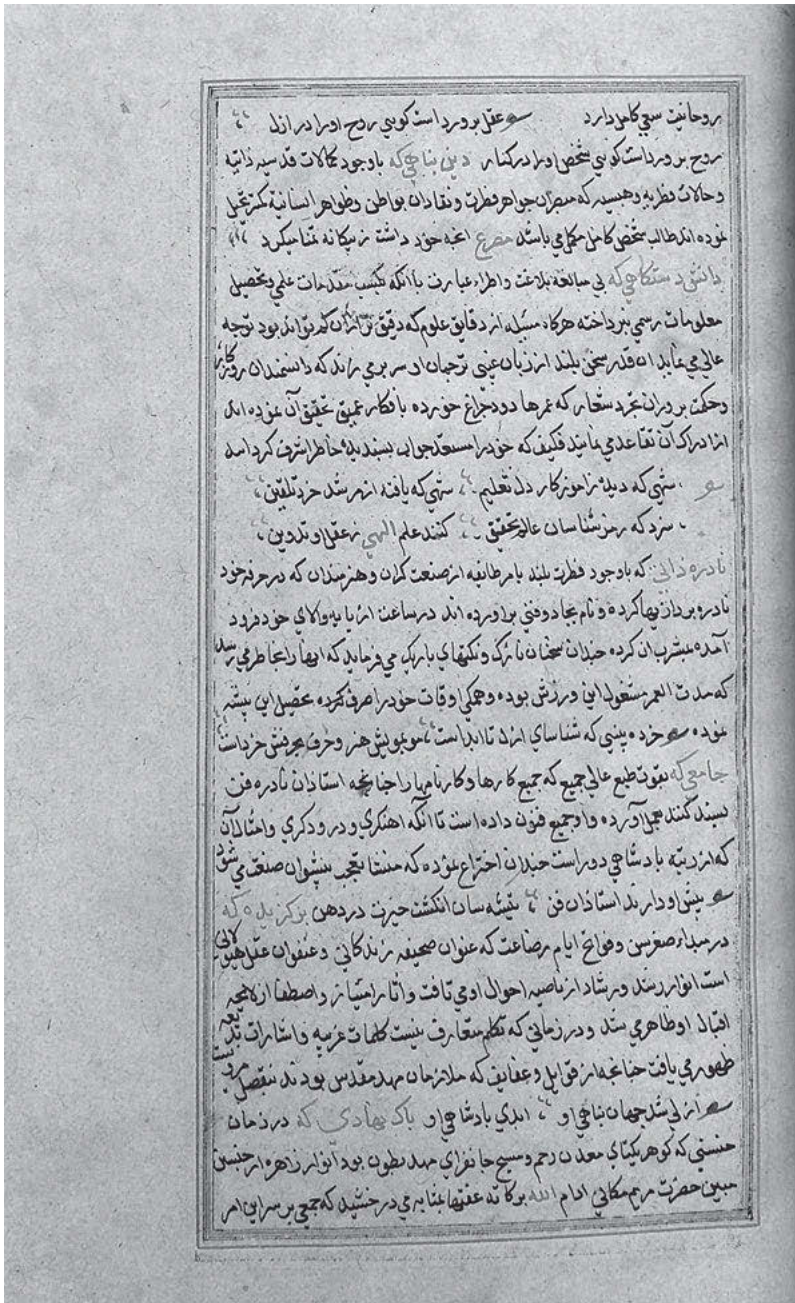 روحانیت سعی کامل دارد عقل پرورد است کویی روح اورا در ازل
روح پرورداست کویی شخص اورا درکنار دین پناهی که باوجود کمالات قدسیه ذاتیه
وحالات فطریه وهبیه که مبصران جواهر فطرت ونقادان بواطن وظواهر انسانیة کمتر تخیل
نموده اند طالب شخص کامل مکمل می باشند مصرع انچه خود داشت ز بیکانه تمنا میکرد
دانش دستکاهی که بی مبالغه بلاغت واطراء عبارت باانکه بکسب مقدمات علمی وتحصیل
معلومات رسمی نپرداخته هرکاه مسئله از دقایق علوم که دقیق تر ازان کم تواند بود توجه
عالی می نماید ان قدر سخن بلند از زبان غیبی ترجمان او سر برمی زند که دانشمندان روزکار
وحکمت پروران تجرد شعار که عمرها دود چراغ خورده بافکار عمیق تحقیق آن نموده اند
از ادراک آن تقاعد می نمایند فکیف که خودرا مستعد جوابی پسندیدهٔ خاطر اشرف کرداند
شهی که دیدهٔ زاموزکار دل تعلیم شهی که یافته ازمرشد خرد تلقین
سزد که رمز شناسان عالم تحقیق کنند علم الهی ز عقل او تدوین
نادره دانی که باوجود فطرت بلند بامر طایفه از صنعت کران وهنرمندان که در حرفه خود
نادره پردازیها کرده و نام بجادوفنی براورده اند درساعت از پایه والای خود فرود
آمده بمشرب ان کرده چندان سخنان نازک ونکتهای باریک می فرماید که انها را بخاطر می رسد
که مدت العمر مشغول این ورزش بوده وهمکی اوقات خودرا صرف کرده تحصیل این پیشه
نموده خرده بینی که شناسای ازل تا ابداست موبمویش هنر وحرف بحرفش خرداست
جامعی که بقوت طبع عالی جمیع کارها وکارنامها را چنانچه استاذان نادره فن
پسند کنند بعمل آورده و داد جمیع فنون داده است تا انکه اهنکری و درودکری وامثال آن
که از رتبه بادشاهی دوراست چندان اختراع نموده که منشا تعجب پیشوان صنعت می شود
پیش او دارند استاذان فن تیشه سان انکشت حیرت در دهن برکزیده که
در مبداء صغرسن وفواتح ایام رضاعت که عنوان صحیفه زندکانی وعنفوان عقل هیولانی
است انوار رشد ورشاد از ناصیه احوال او می تافت واثار امتیاز واصطفا از لایحه
اقبال او ظاهر می شد و در زمانی که تکلم متعارف نیست کلمات غریبه واشارات بدیعه
ظهور می یافت چنانچه از قوابل وعفایف که ملازمان مهد مقدس بودند بتفصیل مرویست
ازلی شد جهان پناهی او ابدی بادشاهی او پاک نهادی که در زمان
جنینی که کوهر یکتای معدن رحم ومسیح جانفزای مهد بطون بود انوار زاهره از جبین
مبین حضرت مریم مکانی ادام الله برکاته عفتها بمثابه می درخشید که جمعی برسراین امر